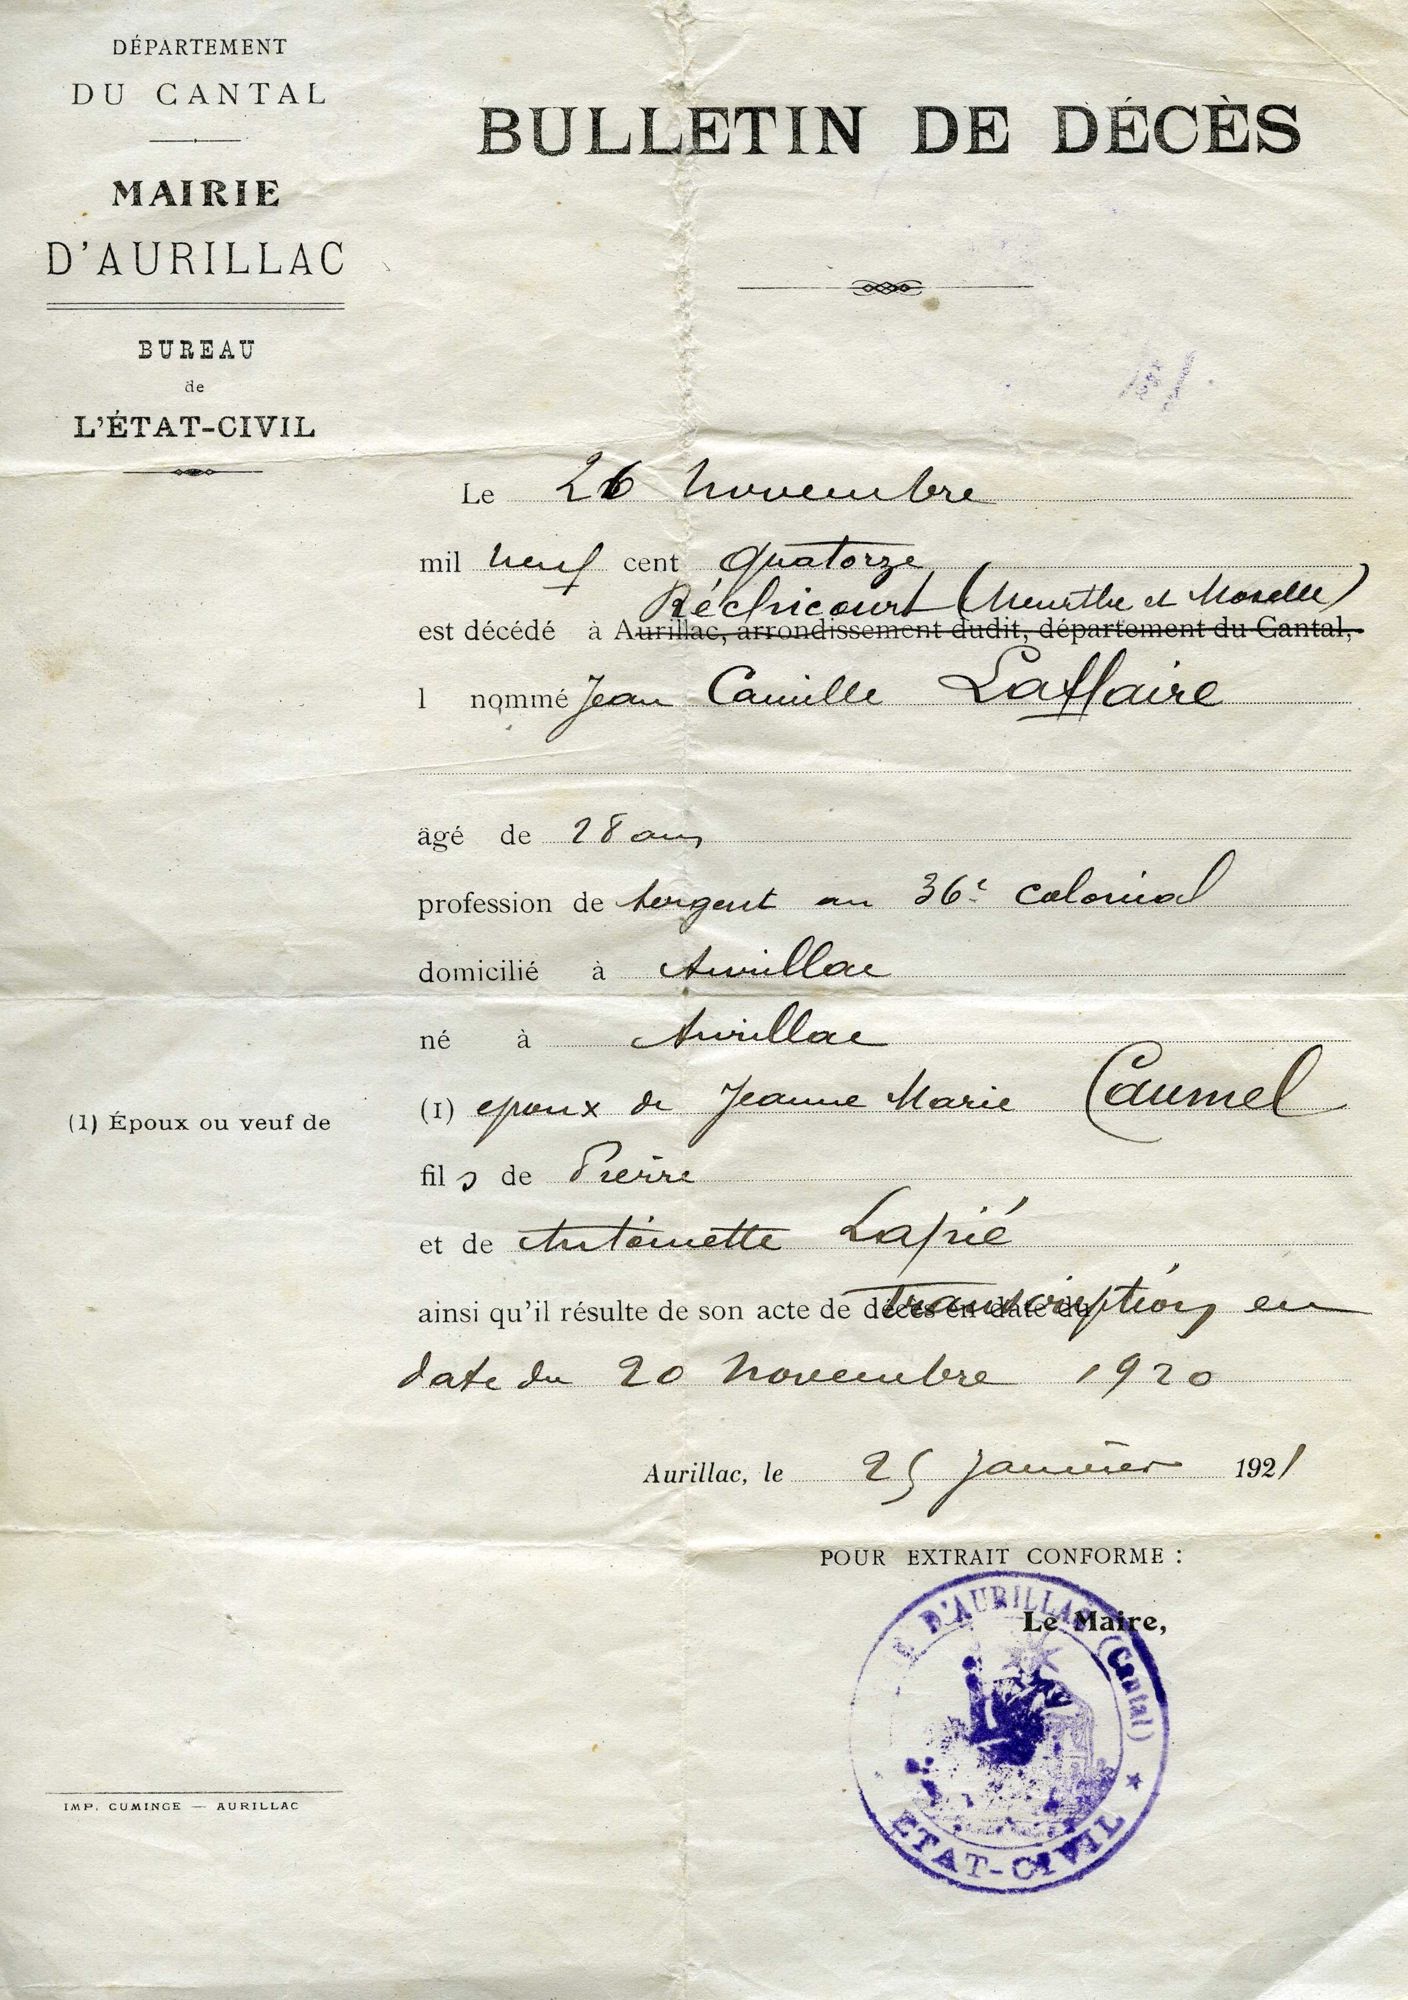 DÉPARTEMENT
DU CANTAL
MAIRIE
D'AURILLAC
BUREAU
de
L'ÉTAT-CIVIL
BULLETIN DE DÉCÈS
Le 26 Novembre
mil neuf cent quatorze
Réchicourt (Meurthe et Moselle)
est décédé à Aurillac, arrondissement dudit, département du Cantal,
l nommé Jean Camille Laffaire
âgé de 28 ans
profession de sergent au 36e colonial
domicilié à Aurillac
né à Aurillac
(1) Époux ou veuf de
(1) epoux de Jeanne Marie Caumel
fils de Pierre
et de Antoinette Lapié
ainsi qu'il résulte de son acte de décès en date du transcription en
date du 20 Novembre 1920
Aurillac, le 25 Janvier 1921
POUR EXTRAIT CONFORME :
Le Maire,
D'AURILLAC (Cantal)
ÉTAT-CIVIL
IMP. CUMINGE — AURILLAC